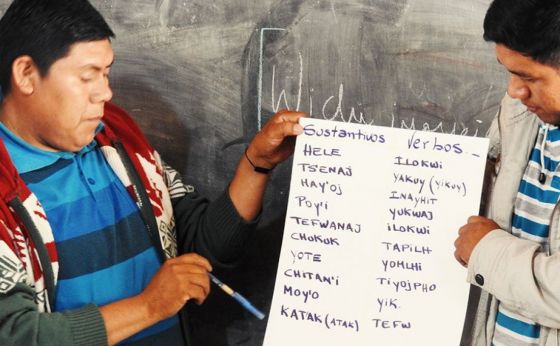 Wichi
Sustantivos Verbos
HELE ILOKWI
TS'ENAJ YAKUY (YIKUY)
HAY'OJ INAYHIT
POY'I YUKWAJ
TEFWANAJ ILOKWI
CHOKUK TAPILH
YOTE YOMLHI
CHITAN'I TIYOJPHO
MOY'O YIK.
KATAK (ATAK) TEFW